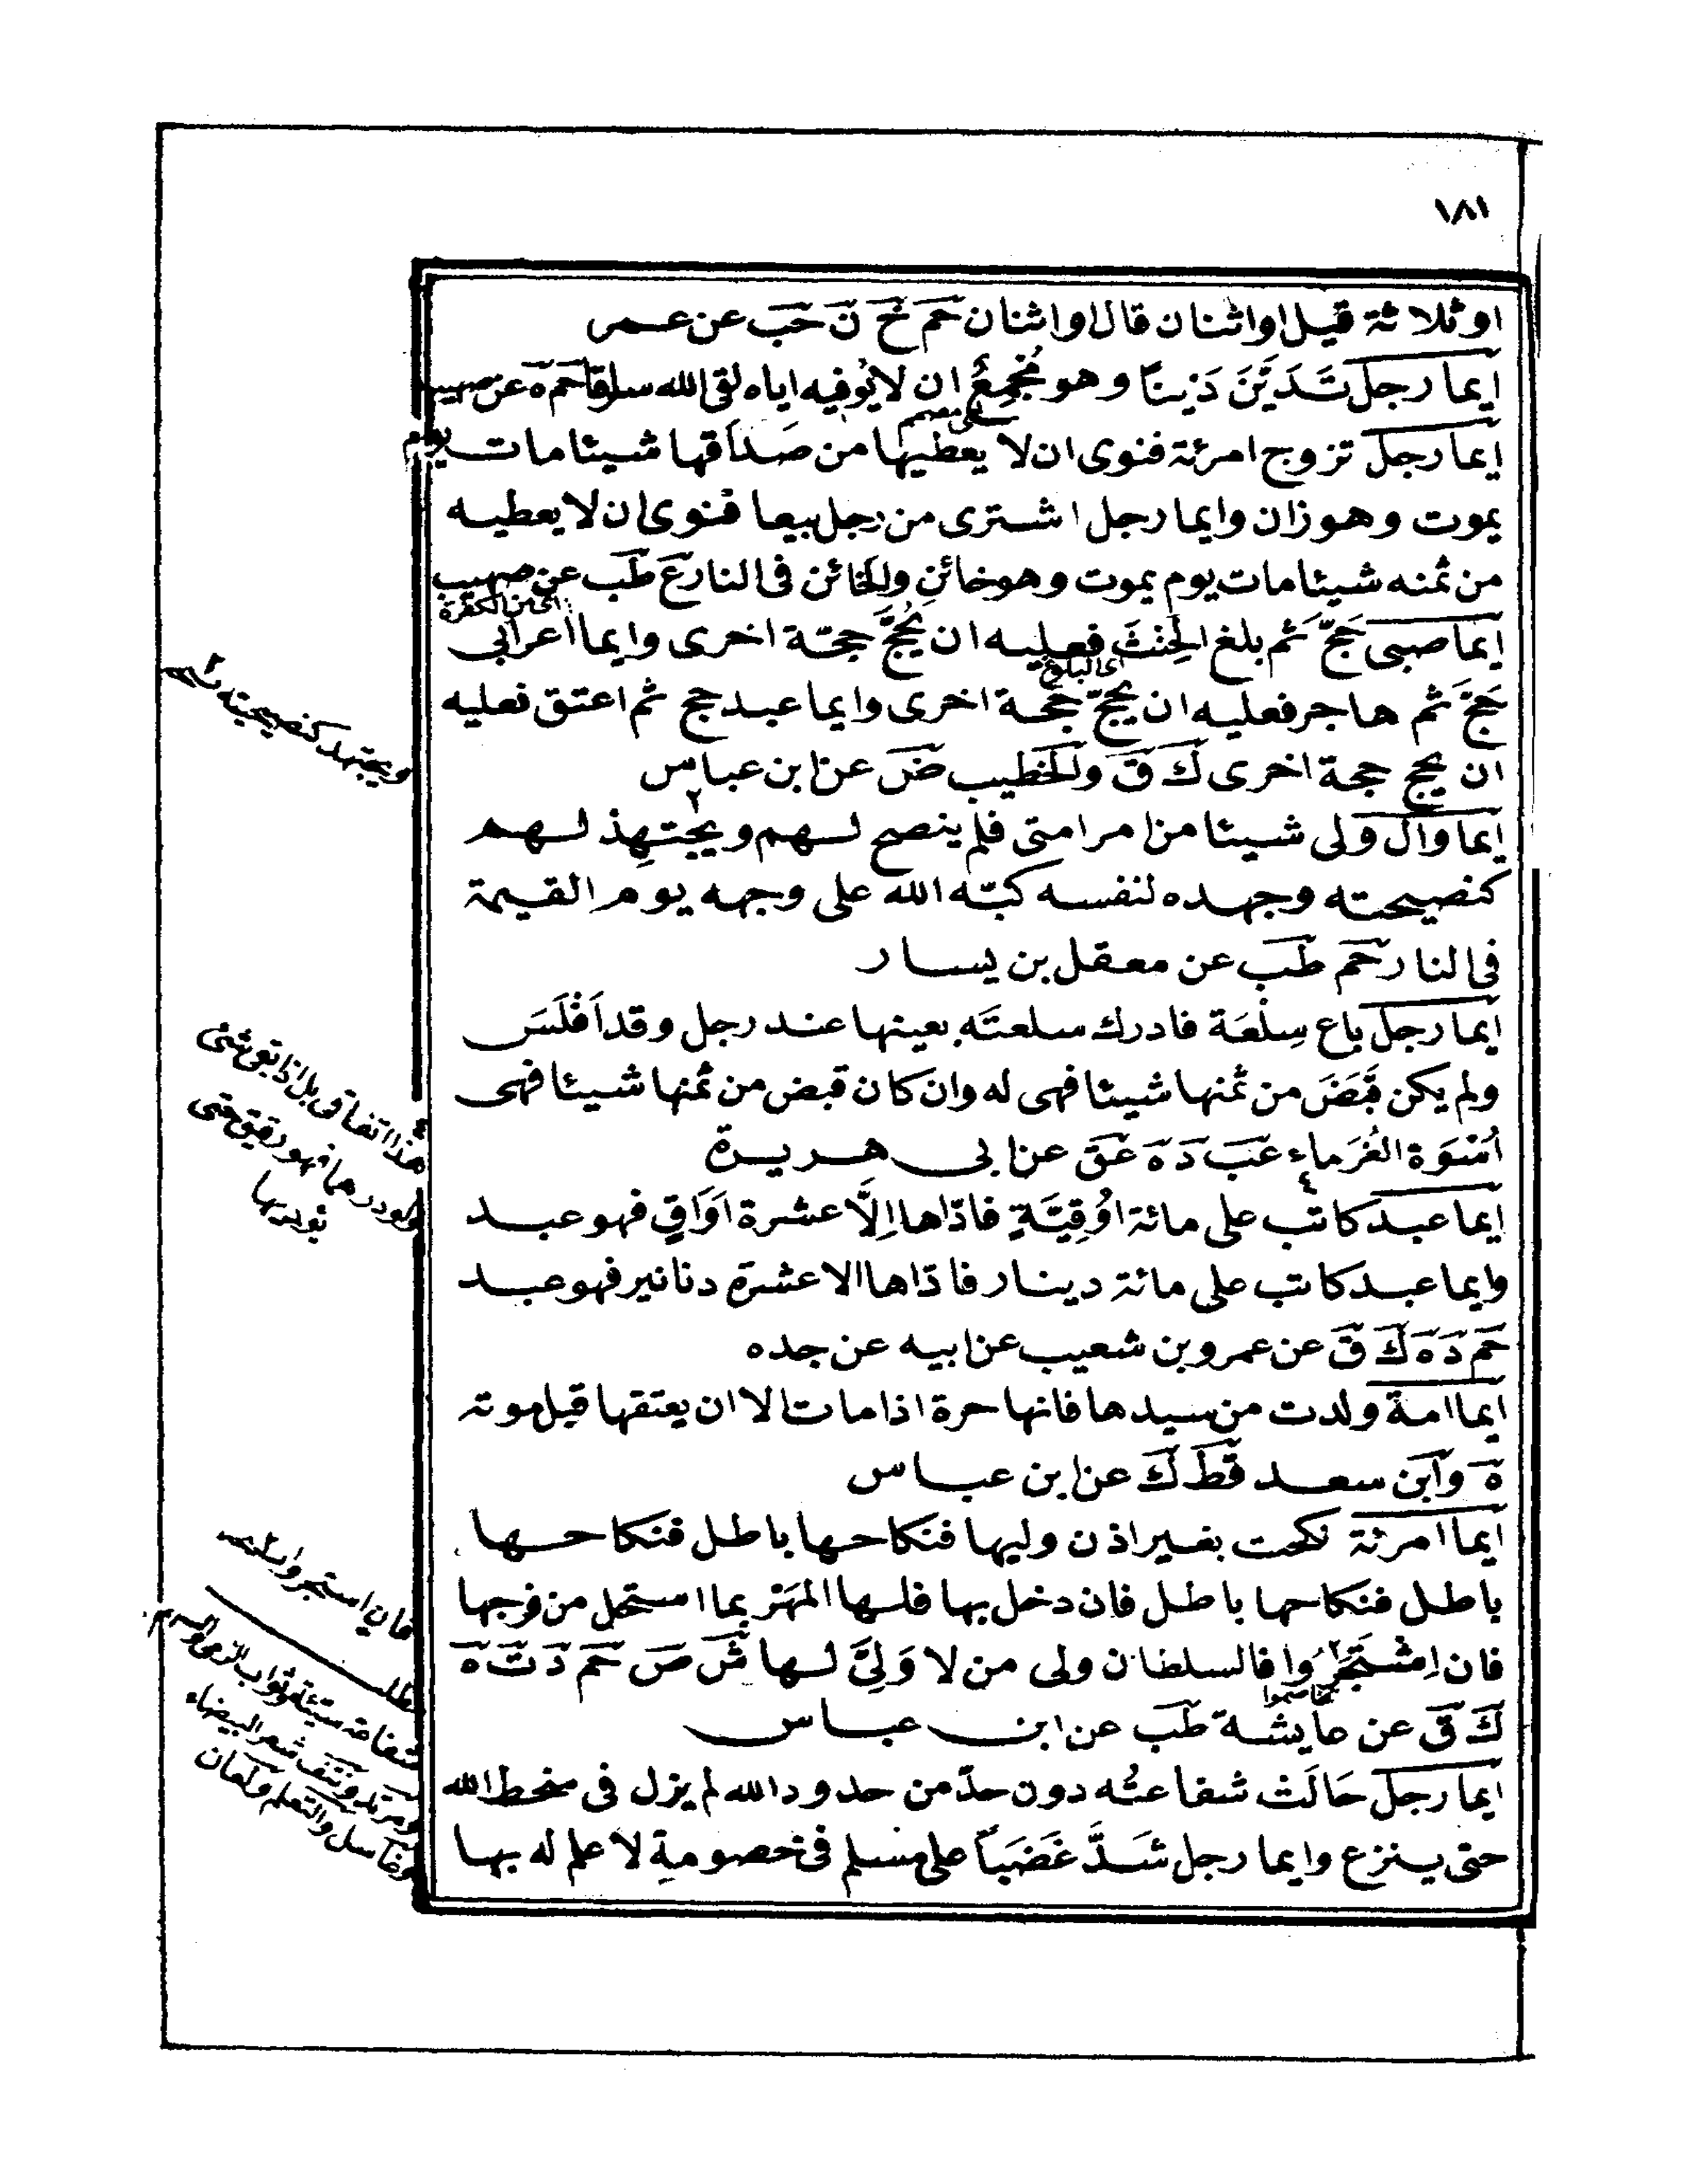 ١٨١
او ثلاثة قيل او اثنان قال او اثنان حم خ ن حب عن عمر
ايما رجل تَدَيَّنَ دَيْناً وهو مُجْمِعٌ ان لا يُوفيه اياه لقى الله سارقا حم ه عن صهيب
ايما رجل تزوج امرئة فنوى ان لا يعطيها من صَدَاقها شيئا مات يوم
يموت وهو زان وايما رجل اشترى من رجل بيعا فنوى ان لا يعطيه
من ثمنه شيئا مات يوم يموت وهو خائن والخائن فى النار ع طب عن صهيب
ايما صبى حَجَّ ثم بلغ الحِنْثَ فعليه ان يَحُجَّ حجّة اخرى وايما اعرابى
اى البلوغ
حَجَّ ثم هاجر فعليه ان يحجّ حجّة اخرى وايما عبد حج ثم اعتق فعليه
ان يحج حجة اخرى ك ق والخطيب ض عن ابن عباس
ايما وال ولى شيئا من امر امتى فلم ينصح لهم ويجتهِد لهم
كنصيحته وجهده لنفسه كبّه الله على وجهه يوم القيمة
فى النار حم طب عن معقل بن يسار
ايما رجل باع سِلْعَة فادرك سلعتَه بعينها عند رجل وقد اَفْلَسَ
ولم يكن قَبَضَ من ثمنها شيئا فهى له وان كان قبض من ثمنها شيئا فهى
اُسْوَة الغُرَماء عب د ه عق عن ابى هريرة
ايما عبد كاتب على مائة اُوْقِيَّةٍ فادّاها اِلَّا عشرة اَوَاقٍ فهو عبد
وايما عبد كاتب على مائة دينار فادّاها الا عشرة دنانير فهو عبد
حم د ه ك ق عن عمرو بن شعيب عن ابيه عن جده
ايما امة ولدت من سيدها فانها حرة اذا مات الا ان يعتقها قبل موته
ه وابن سعد قط ك عن ابن عباس
ايما امرئة نكحت بغير اذن وليها فنكاحها باطل فنكاحها
باطل فنكاحها باطل فان دخل بها فلها المَهْر بما استحل من فرجها
فان اِشْتَجَرُوا فالسلطان ولى من لا وَلِىَّ لها ش ص حم د ت ه
تخاصموا
ك ق عن عايشة طب عن ابن عباس
ايما رجل حَالَتْ شفاعتُه دون حدّ من حدود الله لم يزل فى سخط الله
حتى ينزع وايما رجل شَدَّ غَضَباً على مسلم فى خصومةٍ لا علم له بها
ويجتهد كنصيحته
هذا اتفاقى بل اذا بقى شئ
ولو درهما فهو رقيق حتى
يؤديها
فان استجروا
مطلب